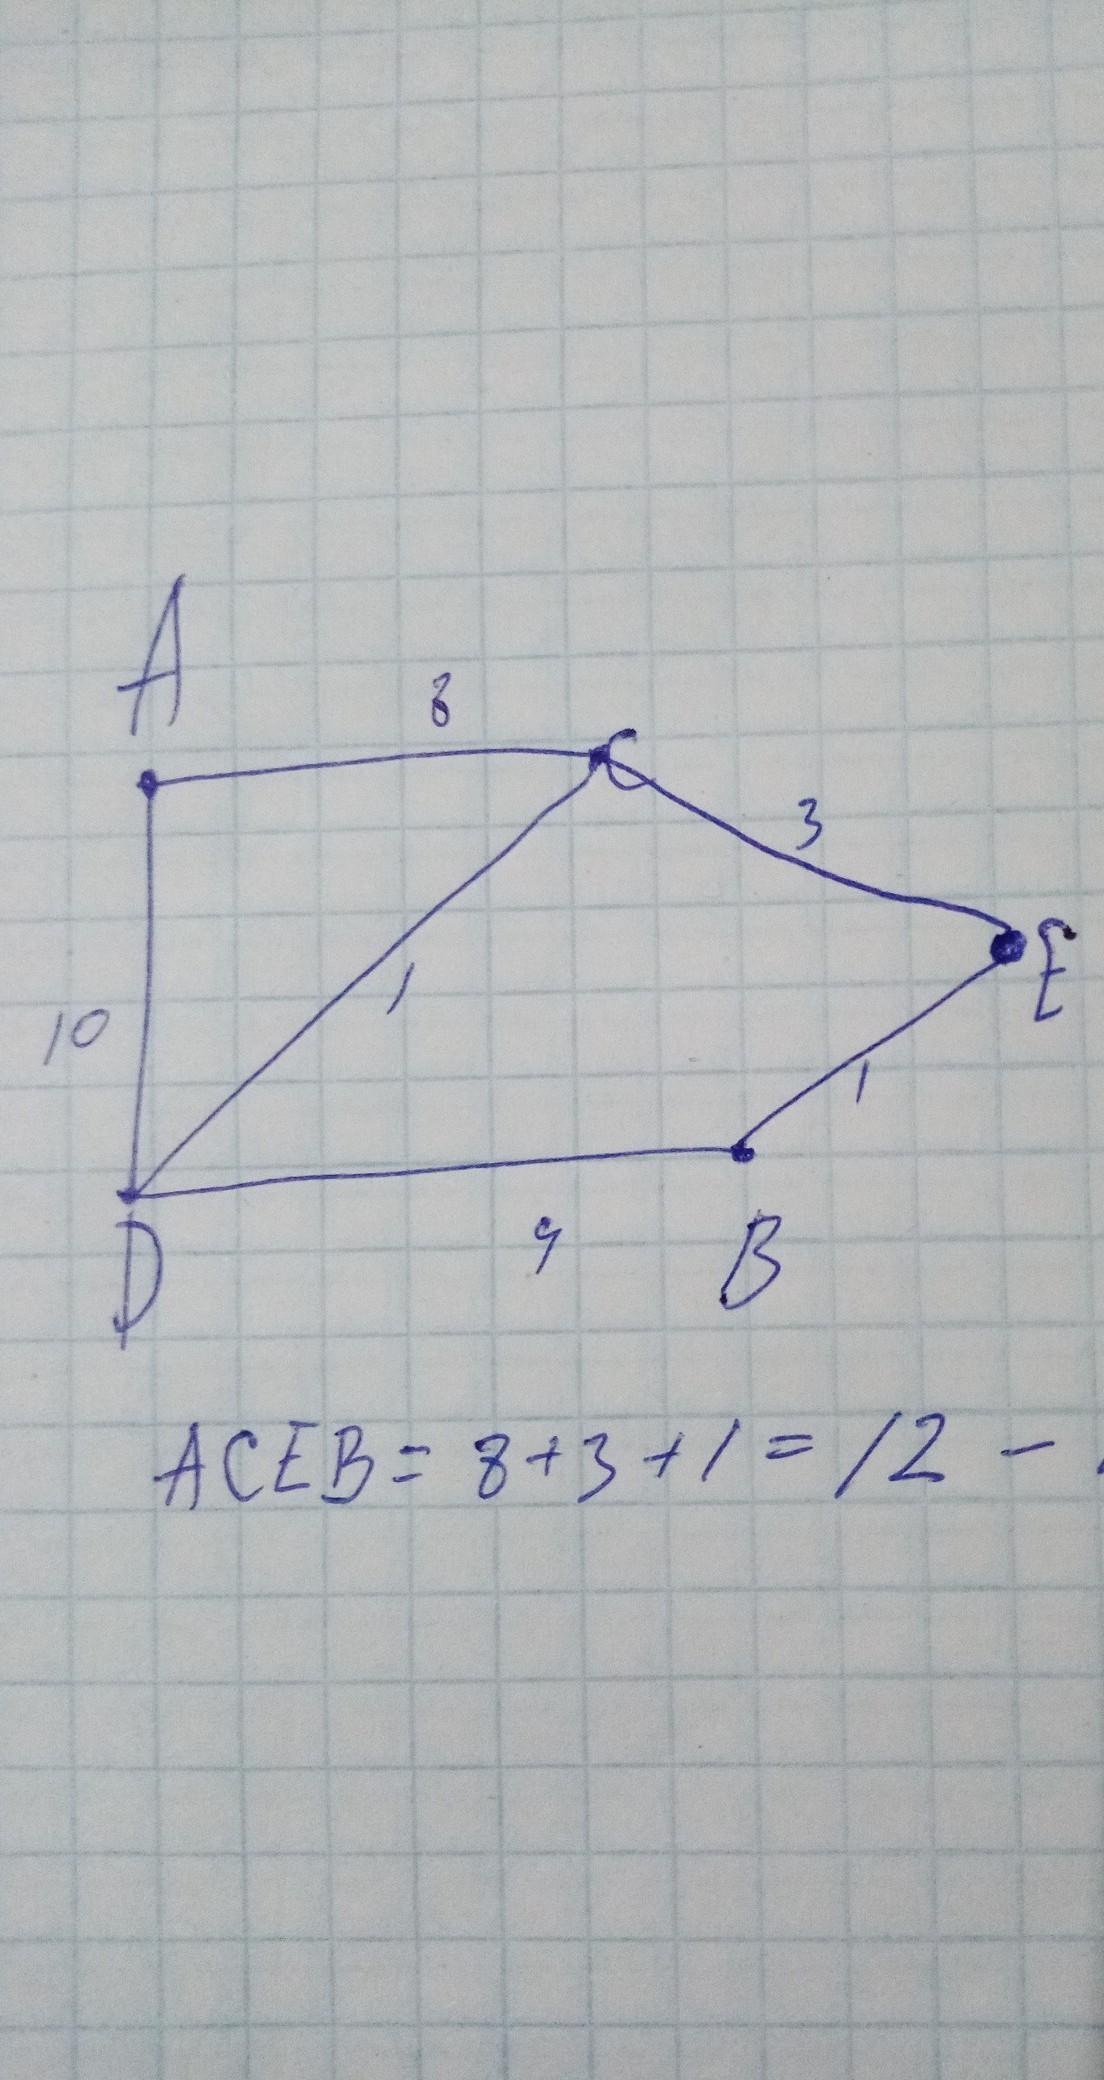 A
8
C
3
E
10
1
1
D
9
B
ACEB = 8+3+1 = 12 -